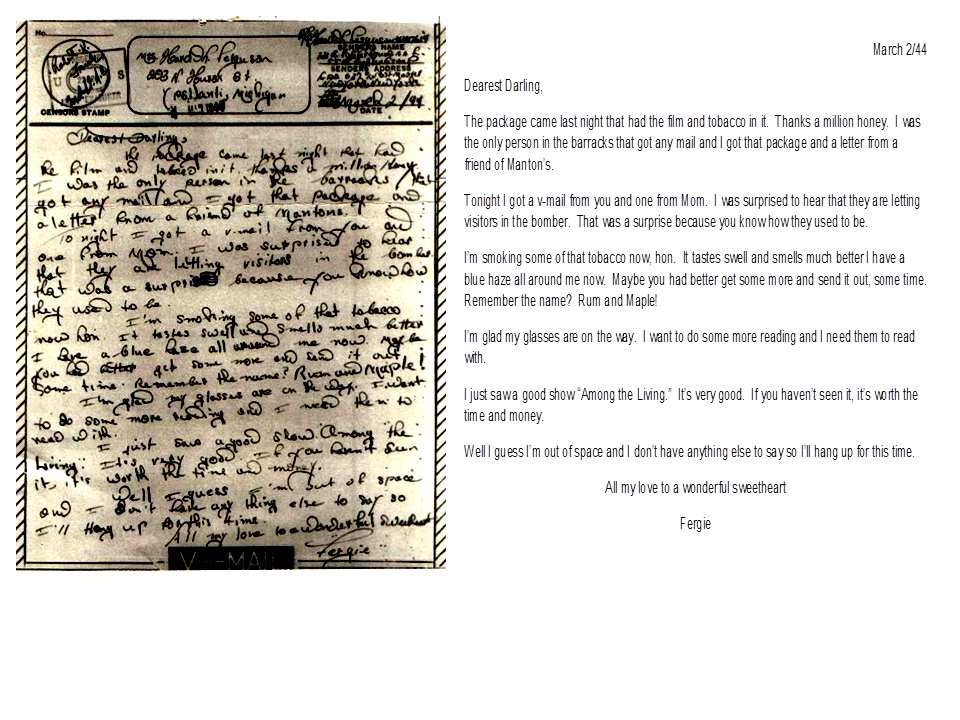 No.
CENSORS STAMP
Mrs. Howard H. Ferguson
N. Huron St.
Ypsilanti, Michigan
SENDERS NAME
SENDERS ADDRESS
March 2/44
DATE
Dearest Darling,
The package came last night that had
the film and tobacco in it. Thanks a million honey
I was the only person in the barracks that
got any mail and I got that package and
a letter from a friend of Mantons.
To night I got a v-mail from you and
one from Mom. I was surprised to hear
that they are letting visitors in the bomber.
that was a surprise because you know how
they used to be.
I'm smoking some of that tobacco
now hon. It tastes swell and smells much better
I have a blue haze all around me now. Maybe
you had better get some more and send it out
some time. Remember the name? Rum and Maple!
I'm glad my glasses are on the way. I want
to do some more reading and I need them to
read with.
I just saw a good show "Among the
Living." It's very good. If you haven't seen
it, it's worth the time and money.
Well I guess I'm out of space
and I don't have any thing else to say so
I'll hang up for this time.
All my love to a wonderful sweetheart
Fergie
V-MAIL
March 2/44
Dearest Darling,
The package came last night that had the film and tobacco in it. Thanks a million honey. I was
the only person in the barracks that got any mail and I got that package and a letter from a
friend of Manton's.
Tonight I got a v-mail from you and one from Mom. I was surprised to hear that they are letting
visitors in the bomber. That was a surprise because you know how they used to be.
I'm smoking some of that tobacco now, hon. It tastes swell and smells much better I have a
blue haze all around me now. Maybe you had better get some more and send it out, some time.
Remember the name? Rum and Maple!
I'm glad my glasses are on the way. I want to do some more reading and I need them to read
with.
I just saw a good show “Among the Living.” It's very good. If you haven't seen it, it's worth the
time and money.
Well I guess I'm out of space and I don't have anything else to say so I'll hang up for this time.
All my love to a wonderful sweetheart
Fergie